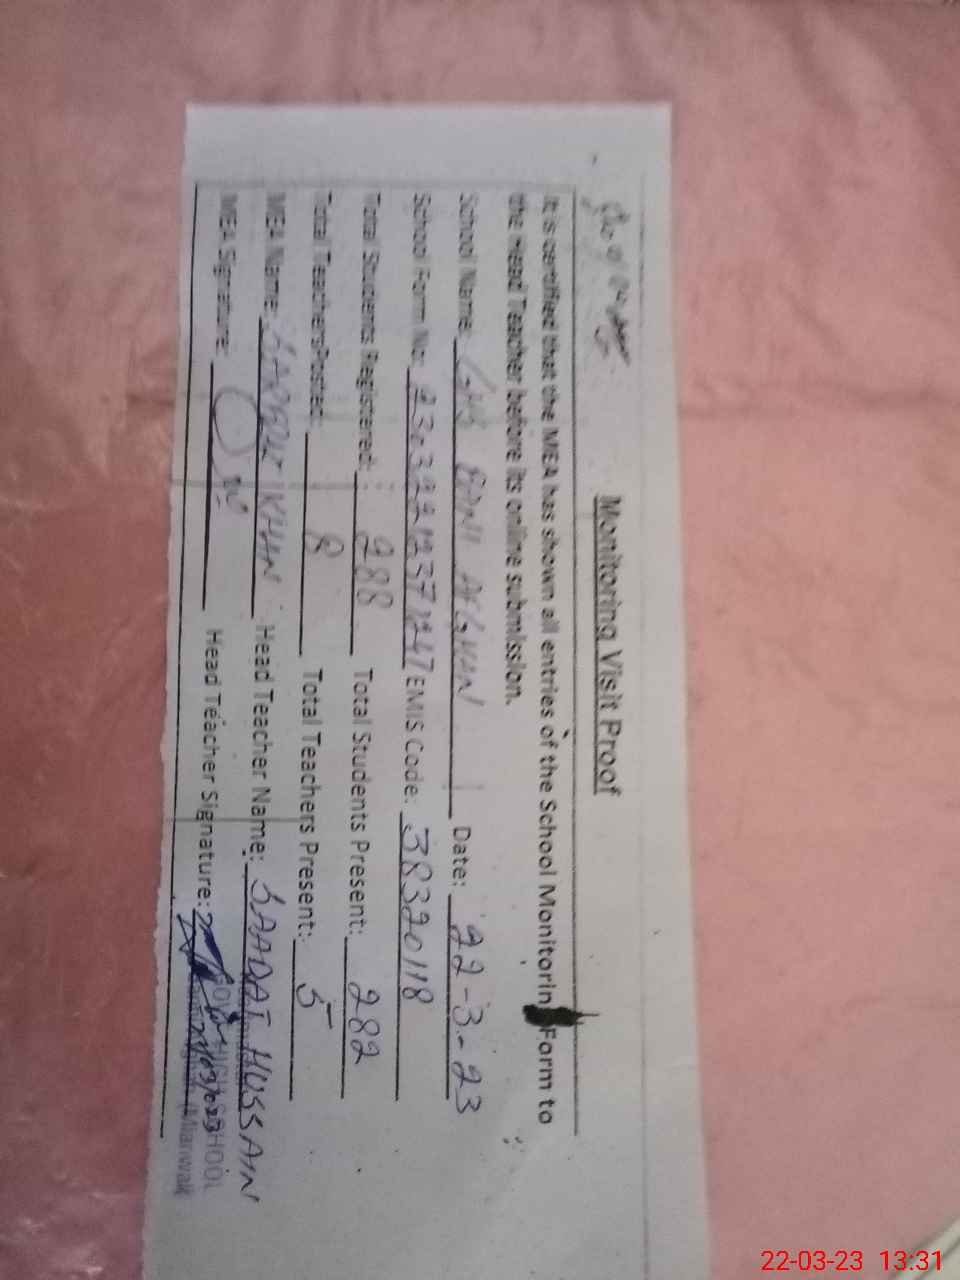 Monitoring Visit Proof
It is certified that the MEA has shown all entries of the School Monitorin Form to
the Head Teacher before its online submission.
School Name: GHS BANI AFGHAN Date: 22-3-23
School Form No: 23032212371247 EMIS Code: 38320118
Total Students Registered: 288 Total Students Present: 282
Total Teachers Posted: 8 Total Teachers Present: 5
MEA Name: KHAN Head Teacher Name: SAADAT HUSSAIN
MEA Signature: Head Teacher Signature:
HIGH SCHOOL
(Mianwali
22-03-23 13:31